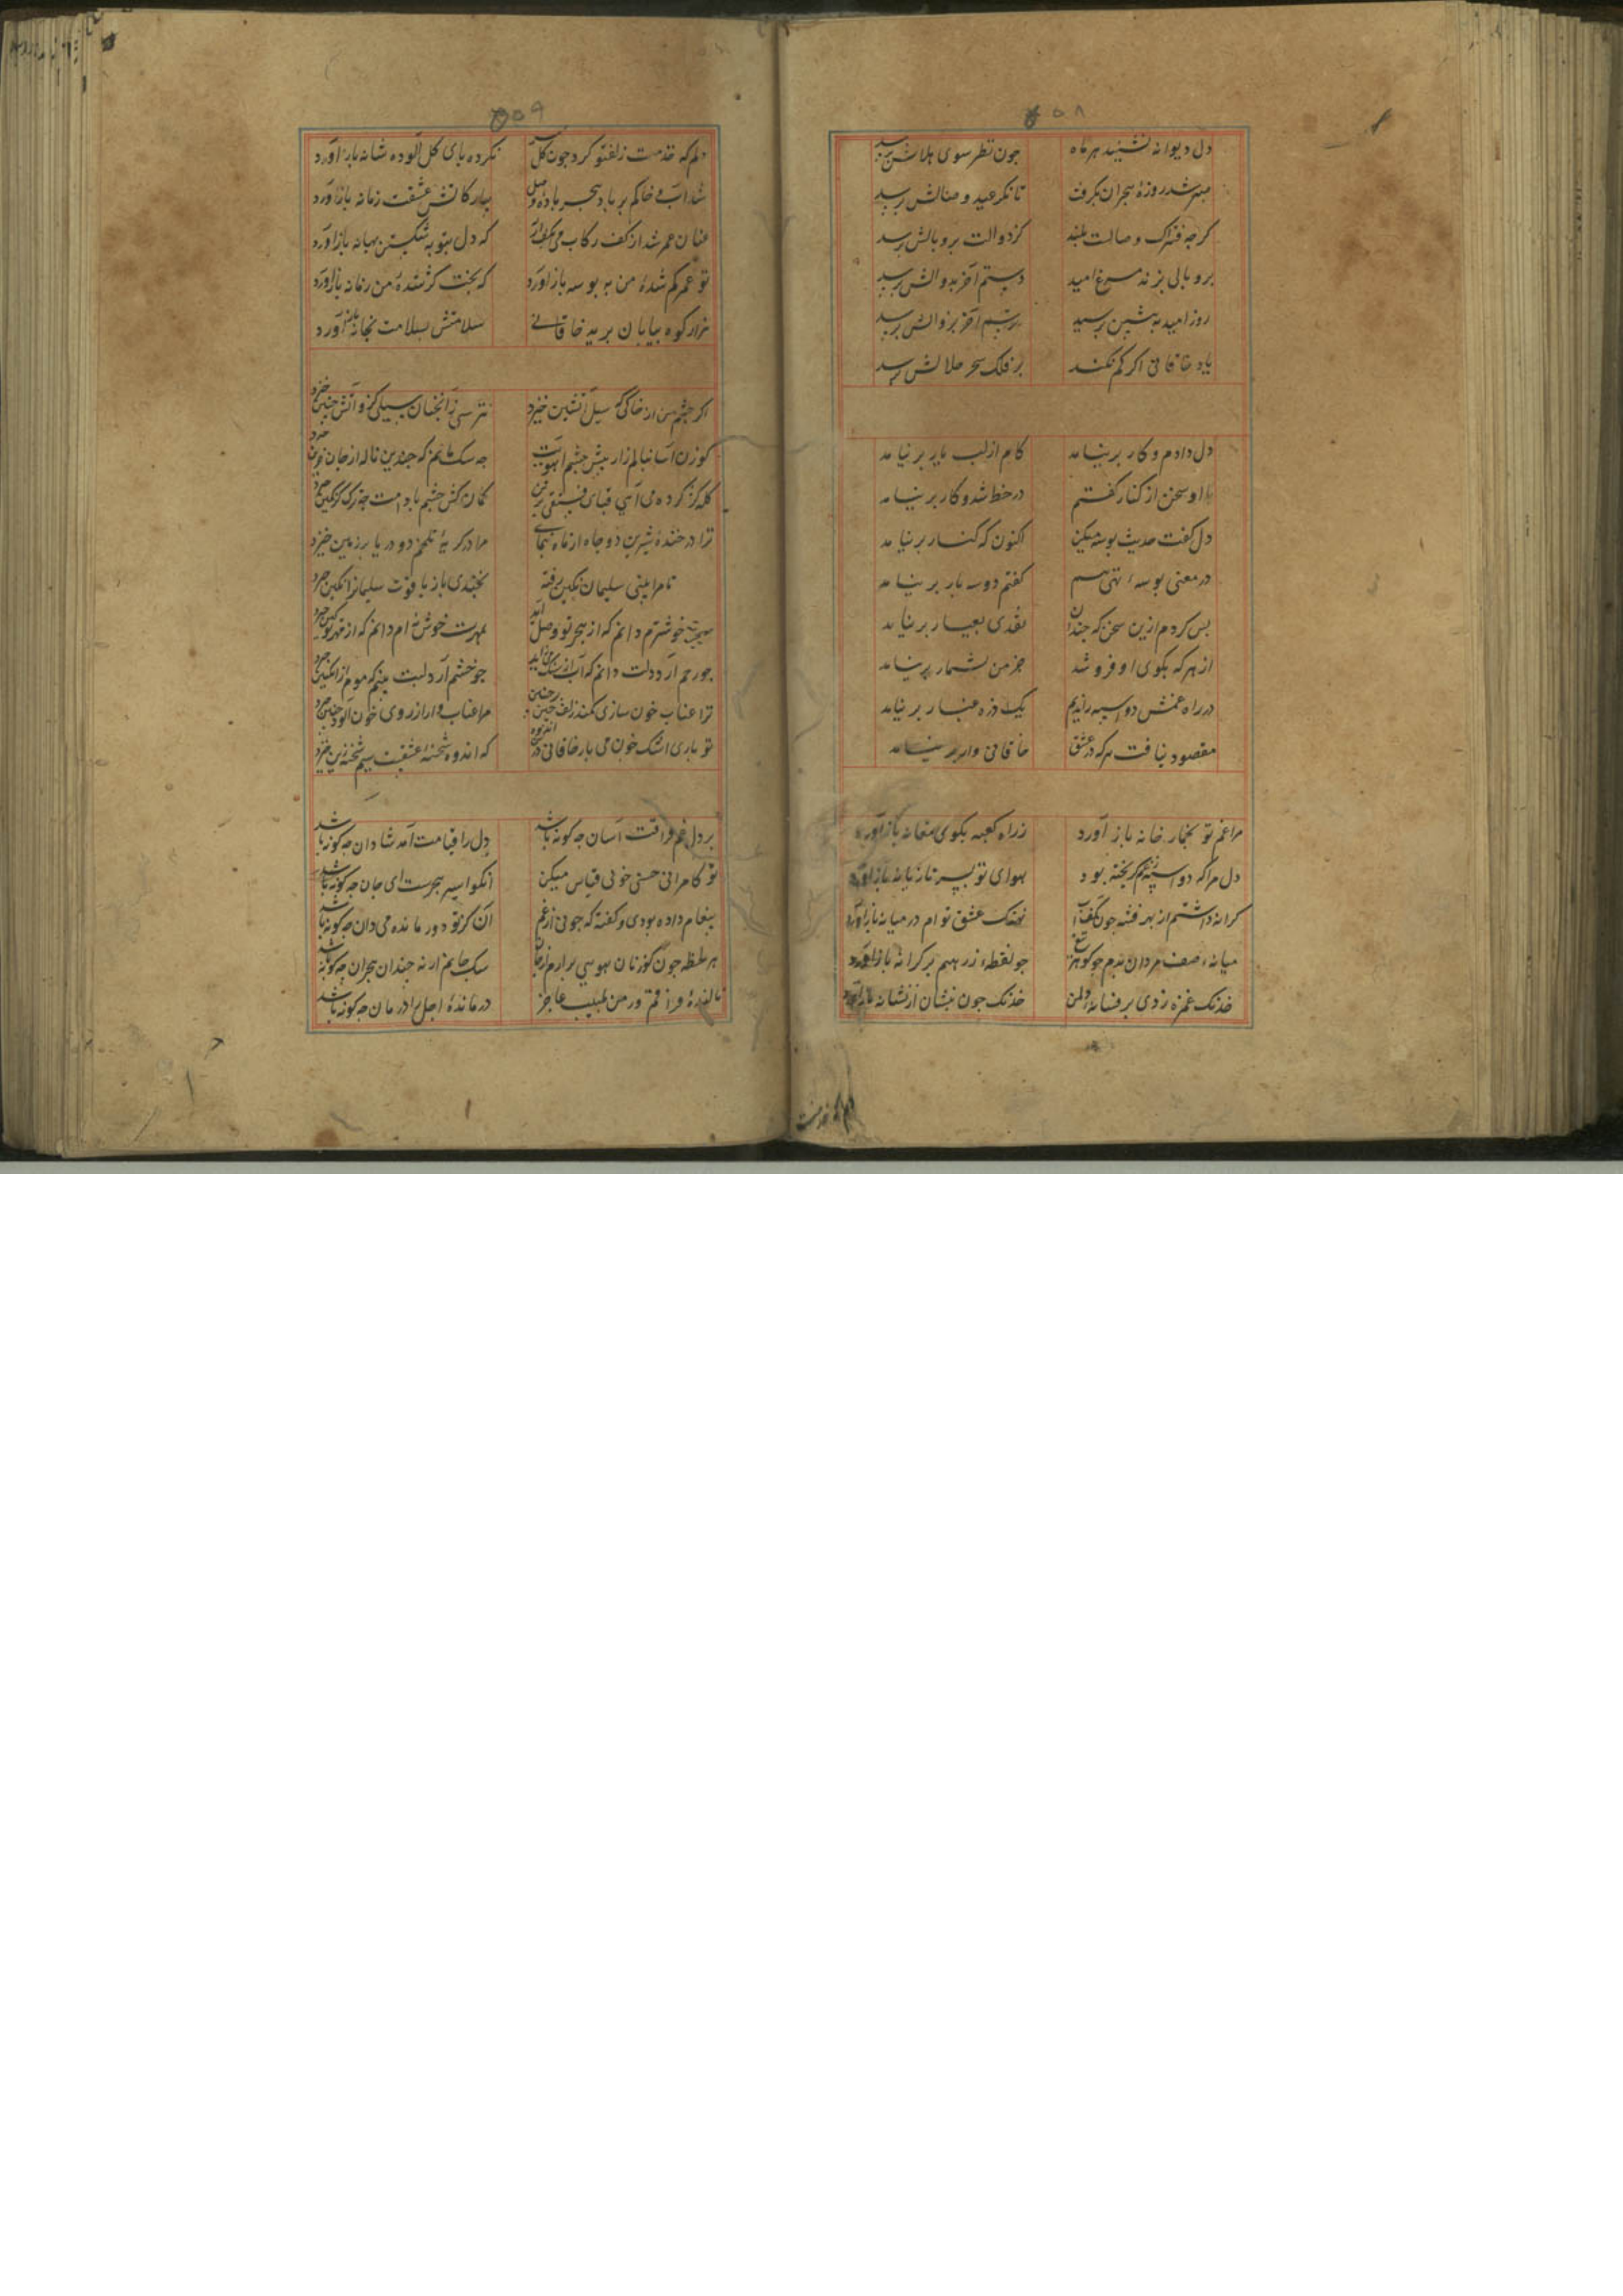 ۵۰۸
دل دیوانه نشیند هر ماه جون نظر سوی هلالش برسد
مهر شد روزهٔ هجران بکرفت تا نکر عید وصالش برسد
کرجه فتراک وصالت بلند کز دوالت بر و بالش برسد
بر و بالی بزند مرغ امید دستم آخر بدوالش برسد
روز امید به پیشین برسید ترسم آخر بزوالش برسد
یاد خاقانی اکر کم نکند بر فلک سحر حلالش برسد
دل دادم و کار بر نیامد کام از لب یار بر نیامد
با او سخن از کنار کفتم در خط شد و کار بر نیامد
دل کفت حدیث بوسه میکن اکنون که کنار بر نیامد
در معنی بوسهء تهی هم کفتم دو سه بار بر نیامد
بس کردم ازین سخن که جندان نقدی بعیار بر نیامد
از هر که بکوی او فرو شد جز من بشمار بر نیامد
در راه غمش دواسبه راندیم یک ذره غبار بر نیامد
مقصود نیافت هر که در عشق خاقانی وار بر نیامد
مرا غم تو بخمار خانه باز آورد ز راه کعبه بکوی مغانه باز آورد
دل مرا که دواسبه ز غم کریخته بود هوای تو بسر تازیانه باز آورد
کرانه داشتم از بهر فتنه جون نهنک عشق توام در میانه باز آورد
میانهء صف مردان بدم جو کوهر تیغ جو نقطهء زرهم بر کرانه باز آورد
خدنک غمزه زدی بر نشانه دل من خدنک جون نشان از نشانه باز آورد
۵۰۹
دلم که خدمت زلف تو کرد جون کل نکرده بای کل آلوده شانه باز آورد
شد آب و خاکم بر باد هجر بادهٔ وصل بیار کاتش عشقت زمانه باز آورد
عنان عمر شد از کف رکاب می که دل بتوبه شکستن بهانه باز آورد
تو عمر کم شدهٔ من به بوسه باز آورد که بخت کم شدهٔ من زمانه باز آورد
هزار کوه بیابان برید خاقانی سلامتش بسلامت بخانه باز آورد
اکر جشم من از خاکی که سیل آتشین خیزد نترسی زانجنان سیلی کزو آتش جنین خیزد
کوزن آسا بنالم زار پیش جشم آهویت جه سک جانم که جندین ناله از جان حزین خیزد
کله کژ کرده می آیی قبای فستقی بر تن کمان کش جشم بادامت جو ترکی کز کمین خیزد
ترا در خندهٔ شیرین دو جاه از ماه بنمایی مرا در کریهٔ تلخم دو دریا بر زمین خیزد
تا مرا بینی سلیمان نکین رفته بخندی باز یاقوت سلیمانرا نکین خیزد
بهجرت خوشترم دانم که از هجر تو وصل آید بمهرت خوش نه ام دانم که از مهر تو کین خیزد
جو رحم آرد دلت دانم که آب از سنک می زاید جو خشم آرد لبت بینم که موم از انکبین خیزد
ترا عناب خون سازی کمند زلف جین بر جین مرا عناب وار از روی خون آلود جین خیزد
تو باری اشک خون می بار خاقانی در که اندوه شحنهٔ عشقست سیم شحنه زین خیزد
بر دل غم فراقت آسان جه کونه باشد دل را قیامت آمد شادان جه کونه باشد
تو کامرانی حسنی خوبی قیاس میکن آنکو اسیر هجرست ای جان جه کونه باشد
پیغام داده بودی و کفته که جونی از غم آن کز تو دور مانده می دان جه کونه باشد
هر لحظه جون کوزنان هویی بر آرم از جان سک جانم ار نه جندان هجران جه کونه باشد
نالندهٔ فراقم ور من طبیب عاجز درماندهٔ اجل را درمان جه کونه باشد